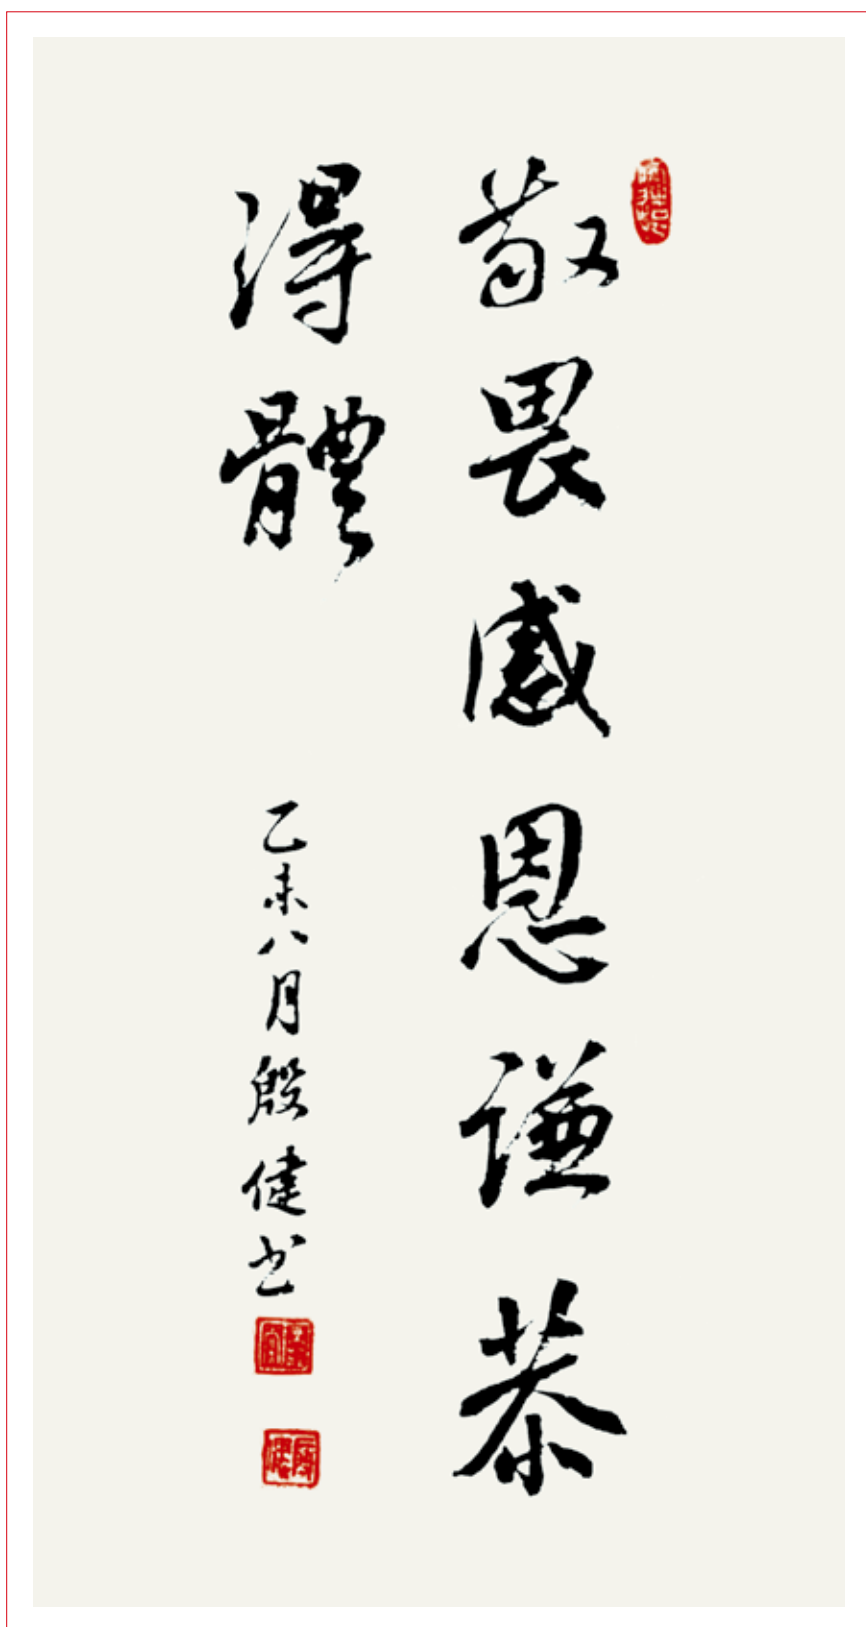 敬畏感恩謙恭
得體
乙未八月殷健书